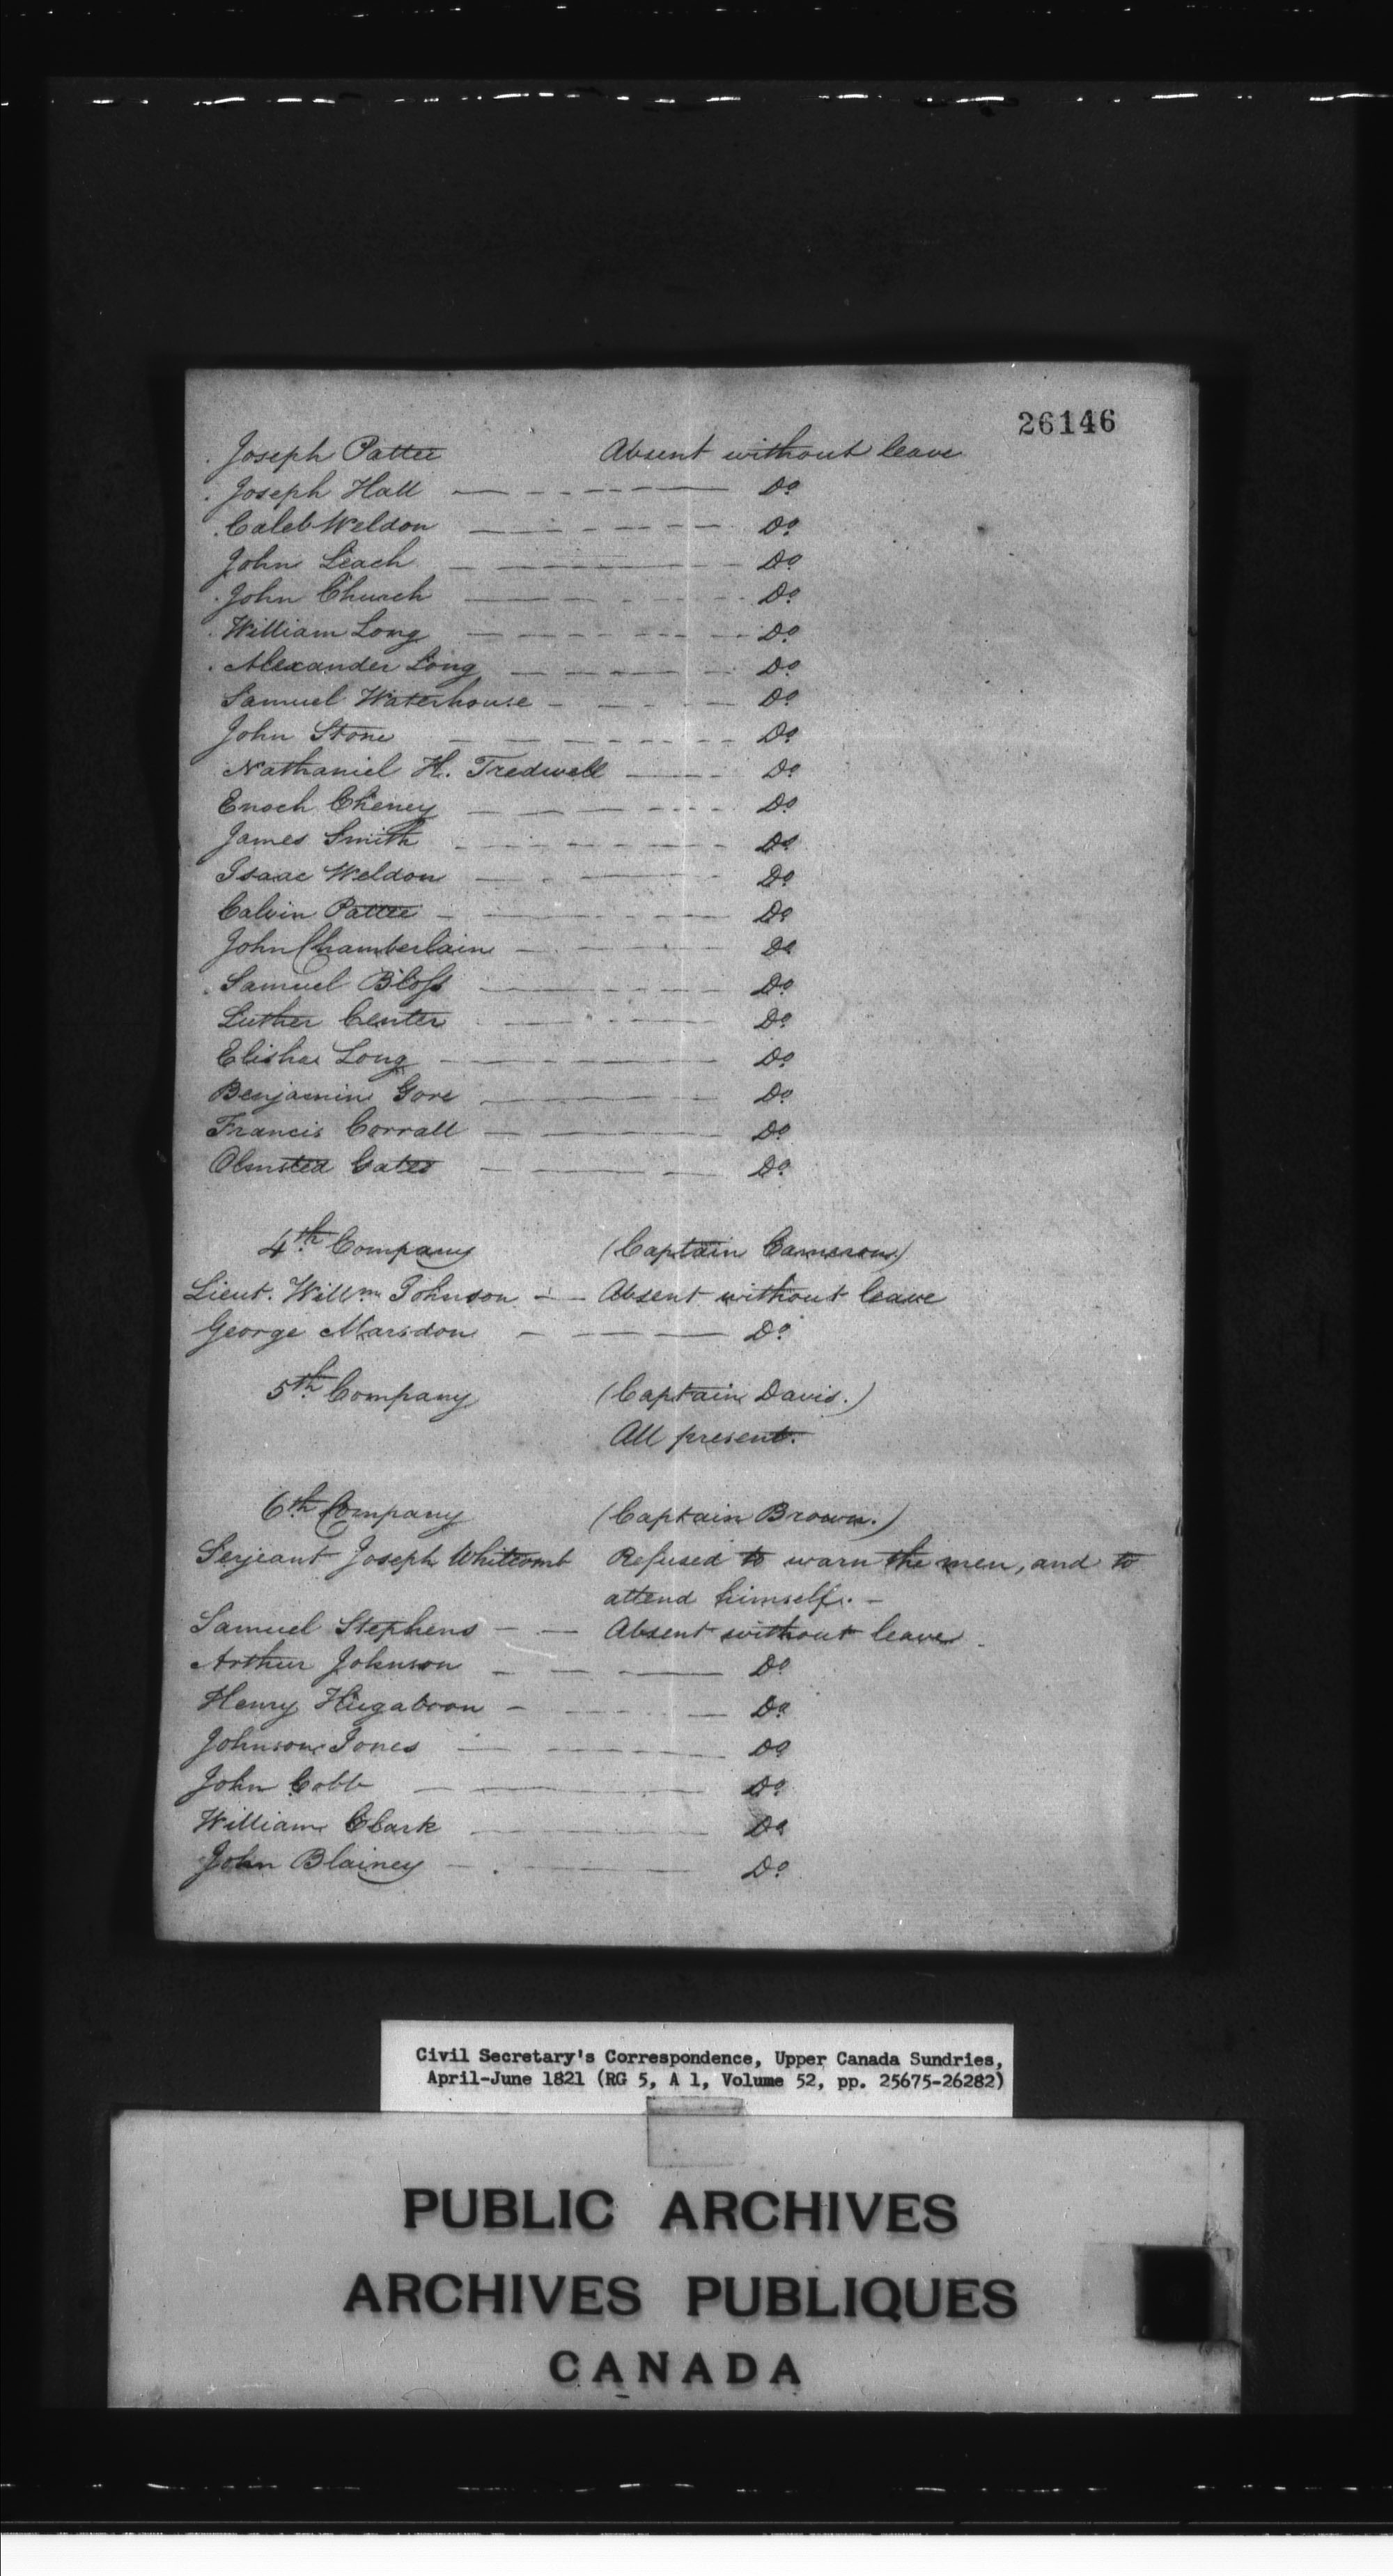 26146
Joseph Pattee Absent without leave
Joseph Hall Do
Caleb Weldon Do
John Leach Do
John Church Do
William Long Do
Alexander Long Do
Samuel Waterhouse Do
John Stone Do
Nathaniel H. Tredwell Do
Enoch Cheney Do
James Smith Do
Isaac Weldon Do
Calvin Pattee Do
John Chamberlain Do
Samuel Bloss Do
Luther Center Do
Elisha Long Do
Benjamin Gore Do
Francis Corrall Do
Olmsted Gates Do
4th Company (Captain Cameron)
Lieut. Willm Johnson Absent without leave
George Marsdon Do
5th Company (Captain Davis.)
All present.
6th Company (Captain Brown.)
Serjeant Joseph Whitcomb Refused to warn the men, and to
attend himself. -
Samuel Stephens Absent without leave
Arthur Johnson Do
Henry Hugaboon Do
Johnson Jones Do
John Cobb Do
William Clark Do
John Blainey Do
Civil Secretary's Correspondence, Upper Canada Sundries,
April-June 1821 (RG 5, A 1, Volume 52, pp. 25675-26282)
PUBLIC ARCHIVES
ARCHIVES PUBLIQUES
CANADA